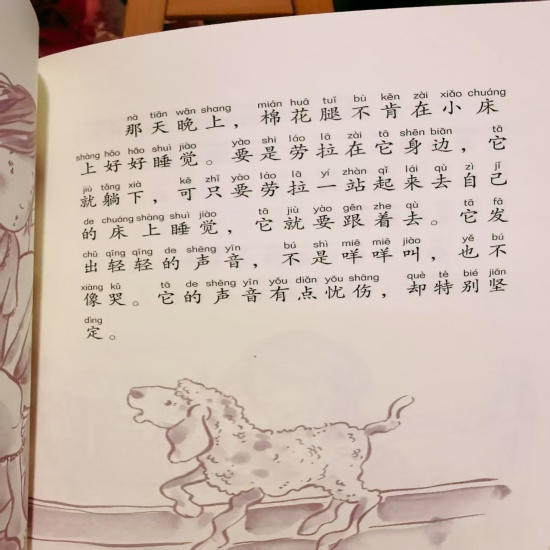 nà tiān wǎn shang mián huā tuǐ bù kěn zài xiǎo chuáng
那天晚上，棉花腿不肯在小床
shàng hǎo hǎo shuì jiào yào shi láo lā zài tā shēn biān tā
上好好睡觉。要是劳拉在它身边，它
jiù tǎng xià kě zhǐ yào láo lā yí zhàn qǐ lái qù zì jǐ
就躺下，可只要劳拉一站起来去自己
de chuáng shàng shuì jiào tā jiù yào gēn zhe qù tā fā
的床上睡觉，它就要跟着去。它发
chū qīng qīng de shēng yīn bú shì miē miē jiào yě bú
出轻轻的声音，不是咩咩叫，也不
xiàng kū tā de shēng yīn yǒu diǎn yōu shāng què tè bié jiān
像哭。它的声音有点忧伤，却特别坚
dìng
定。